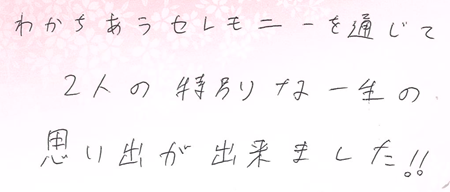 わかちあうセレモニーを通じて
2人の特別な一生の
思い出が出来ました!!